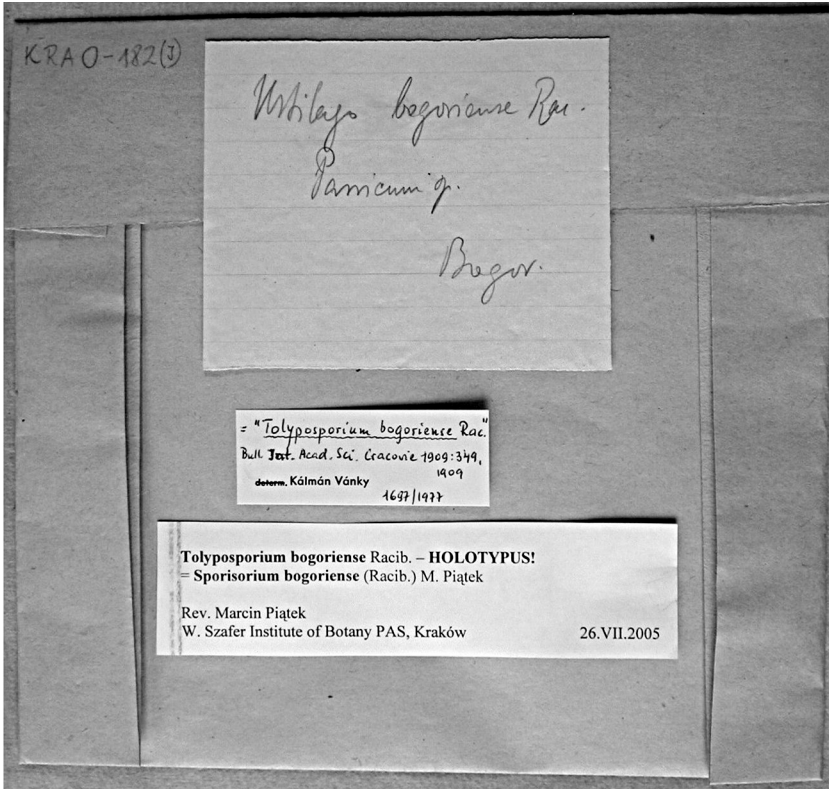 KRAO-182(J)
Ustilago bogoriense Rac.
Pannicum sp.
Bogor.
= "Tolyposporium bogoriense Rac."
Bull. Acad. Sci. Cracovie 1909:349,
1909
determ. Kálmán Vánky
1697/1977
Tolyposporium bogoriense Racib. – HOLOTYPUS!
= Sporisorium bogoriense (Racib.) M. Piątek
Rev. Marcin Piątek
W. Szafer Institute of Botany PAS, Kraków
26.VII.2005